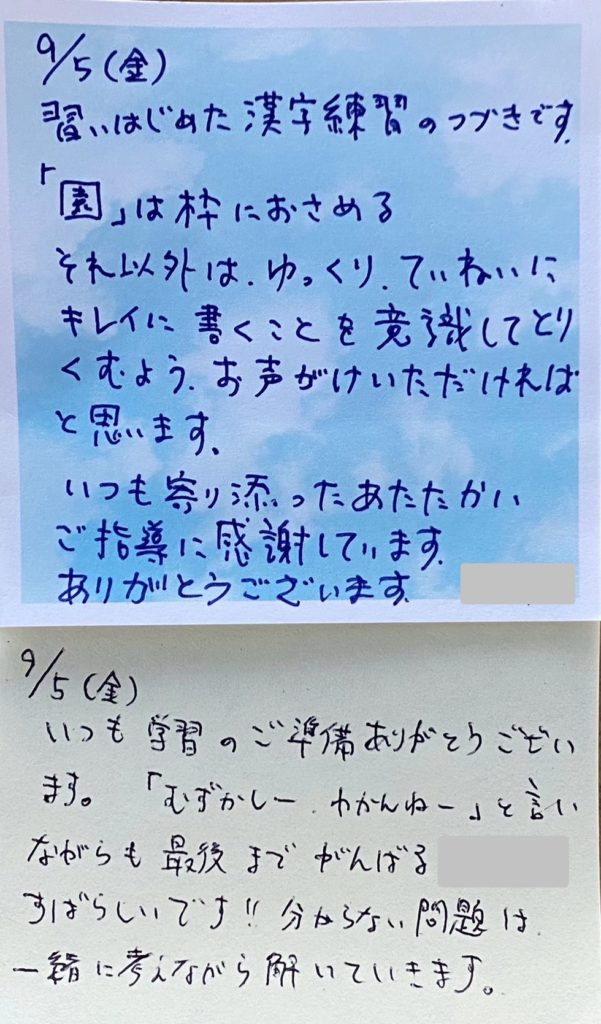 9/5(金)
習いはじめた漢字練習のつづきです.
「園」は枠におさめる
それ以外は、ゆっくり、ていねいに
キレイに書くことを意識してとり
くむよう、お声がけいただければ
と思います。
いつも寄り添ったあたたかい
ご指導に感謝しています.
ありがとうございます.
9/5(金)
いつも学習のご準備ありがとうござい
ます。「むずかしー、わかんねー」と言い
ながらも最後までがんばる
すばらしいです!!分からない問題は、
一緒に考えながら解いていきます。